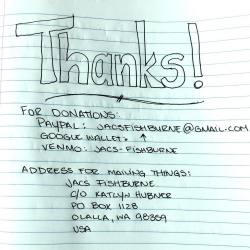 Thanks!
FOR DONATIONS:
PAYPAL: JACSFISHBURNE@GMAIL.COM
GOOGLE WALLET: ↑
VENMO: JACS-FISHBURNE
ADDRESS FOR MAILING THINGS:
JACS FISHBURNE
C/O KATLYN HUBNER
PO BOX 1128
OLALLA, WA 98359
USA